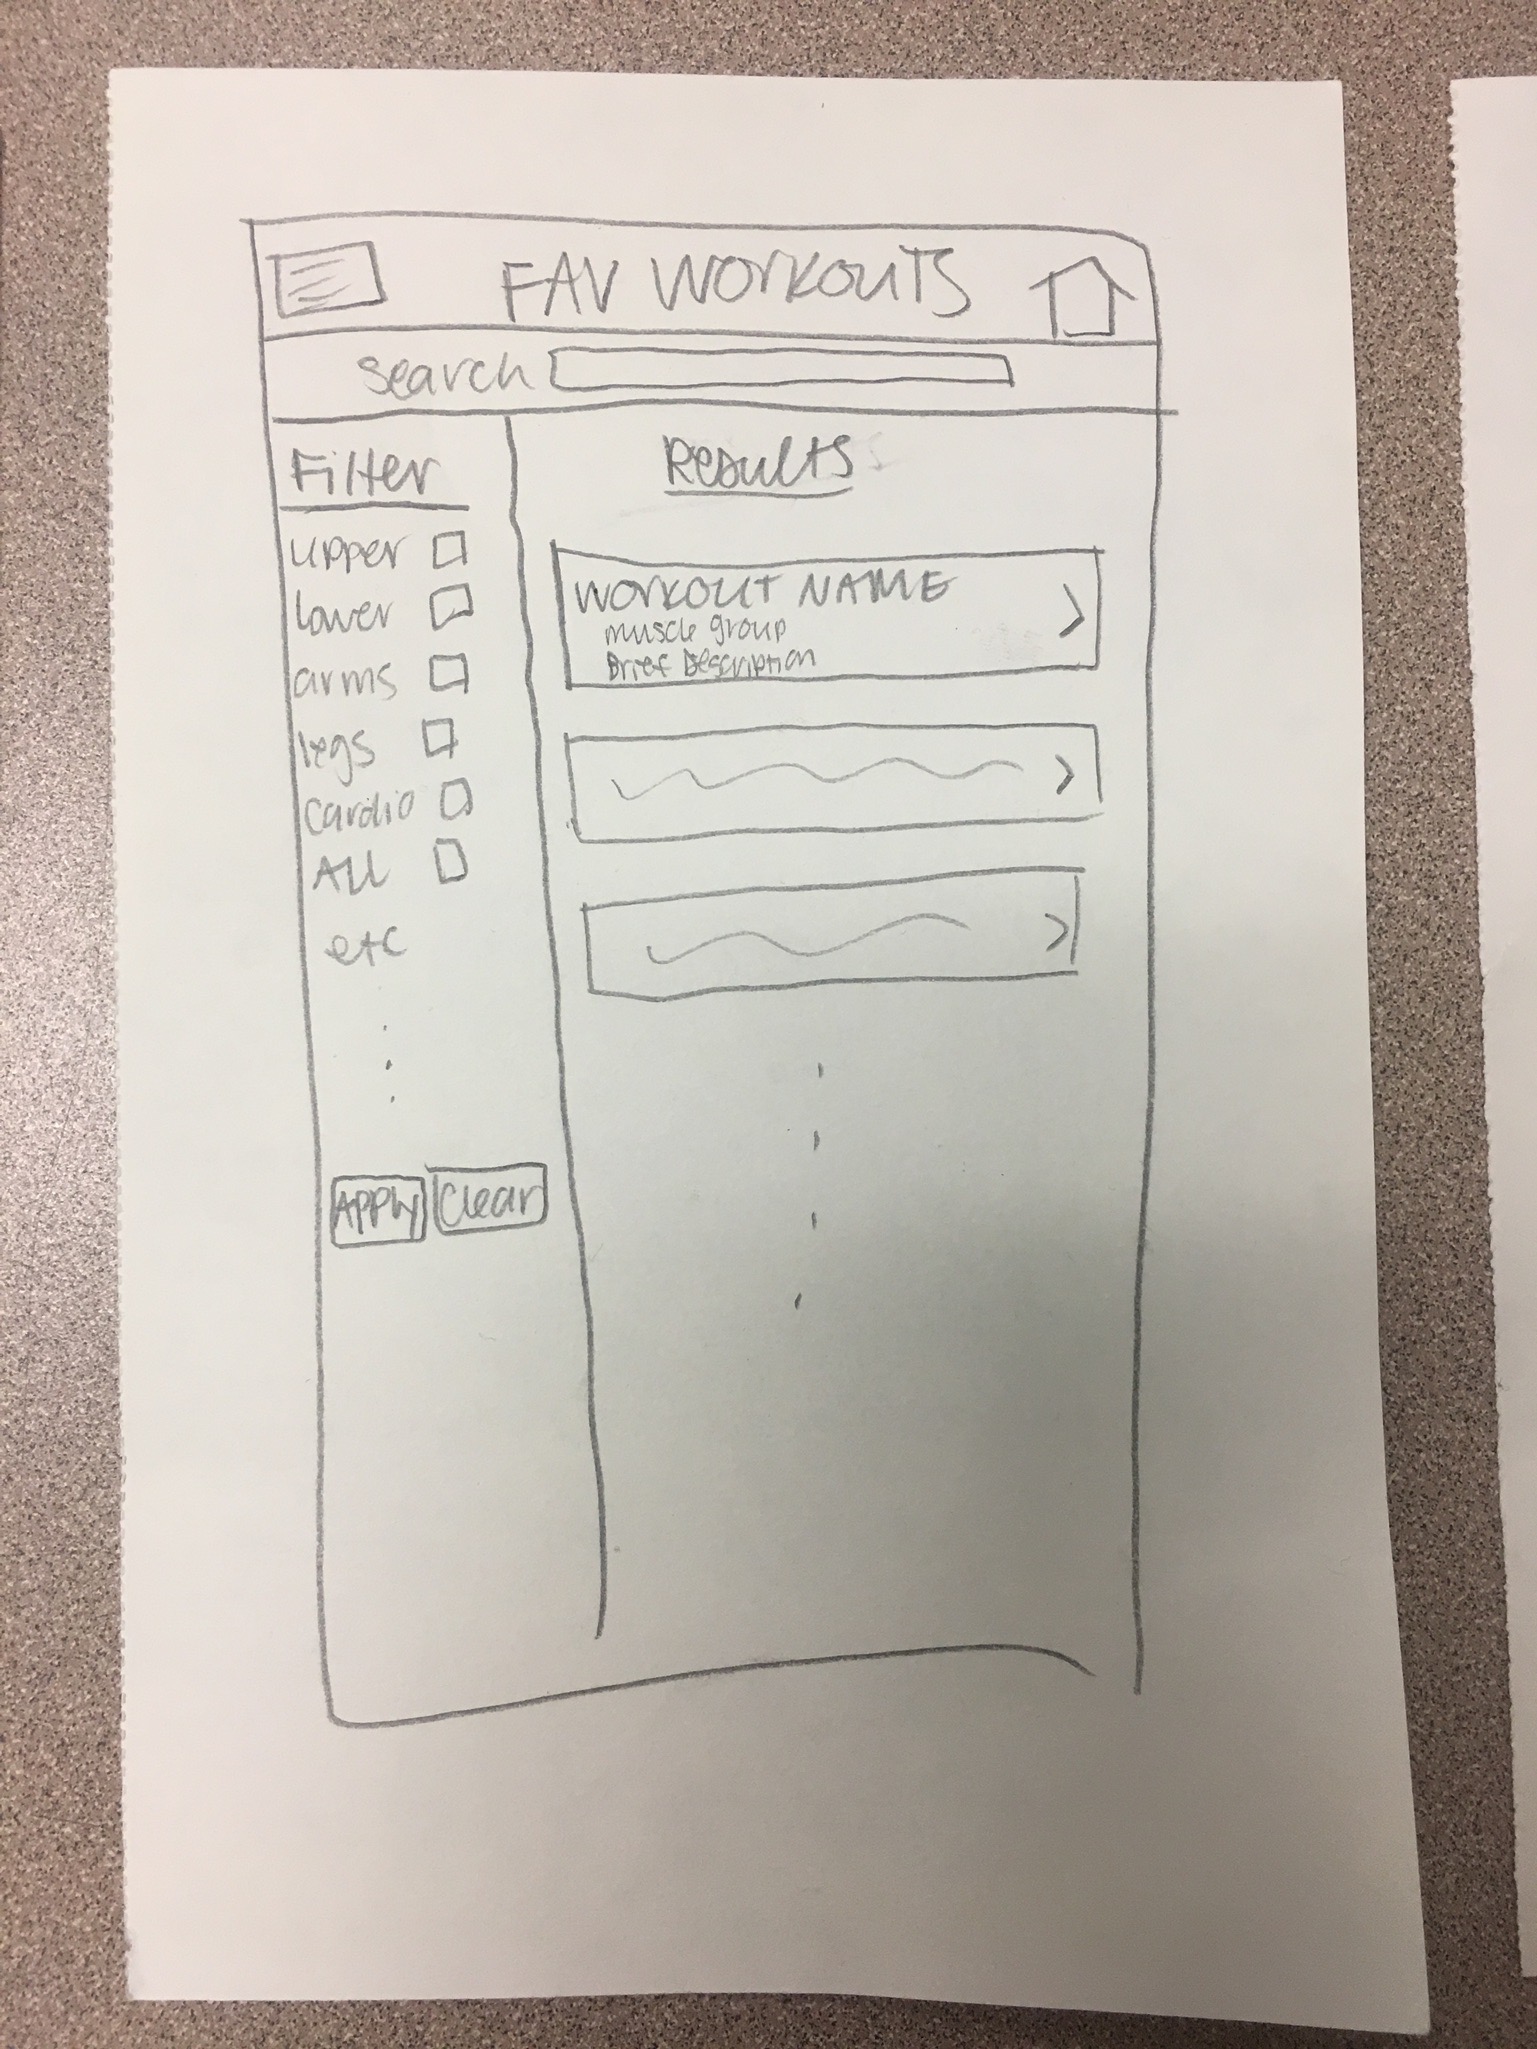 FAV WORKOUTS
search
Filter
upper
lower
arms
legs
cardio
ALL
etc
APPLY Clear
Results
WORKOUT NAME
muscle group
Brief Description